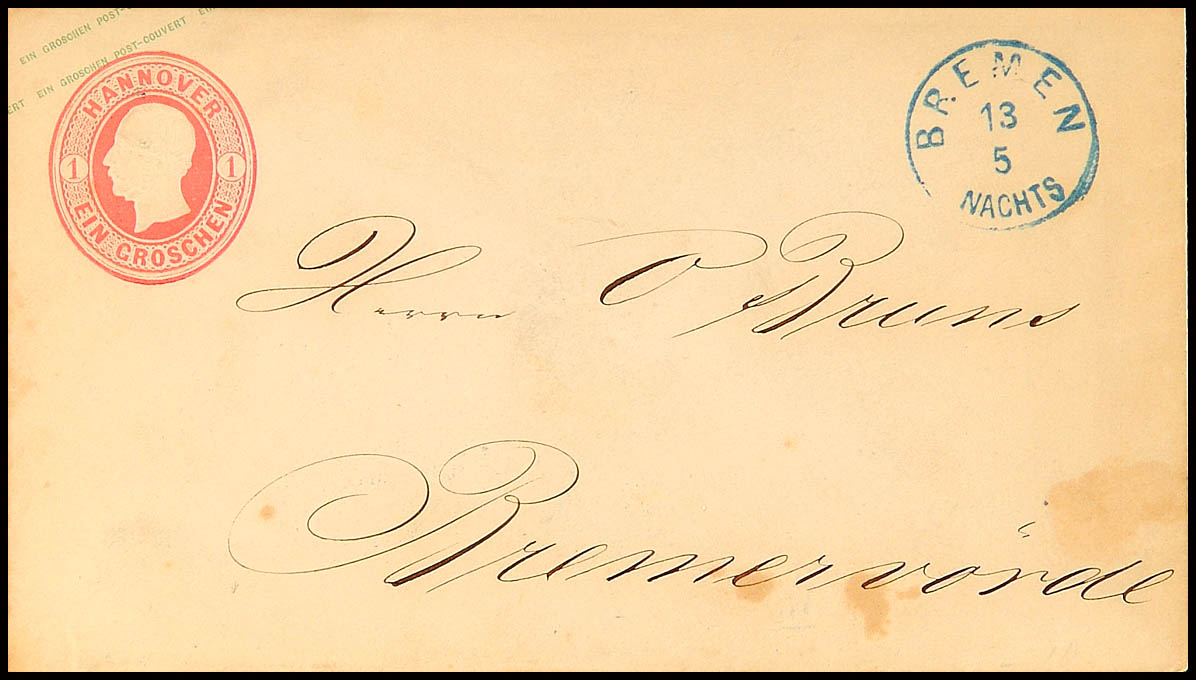 EIN GROSCHEN POST-COUVERT EIN
ERT EIN GROSCHEN POST-COUVERT EIN
HANNOVER
1 1
EIN GROSCHEN
BREMEN
13
5
NACHTS
Herrn O Bruns
Bremervörde